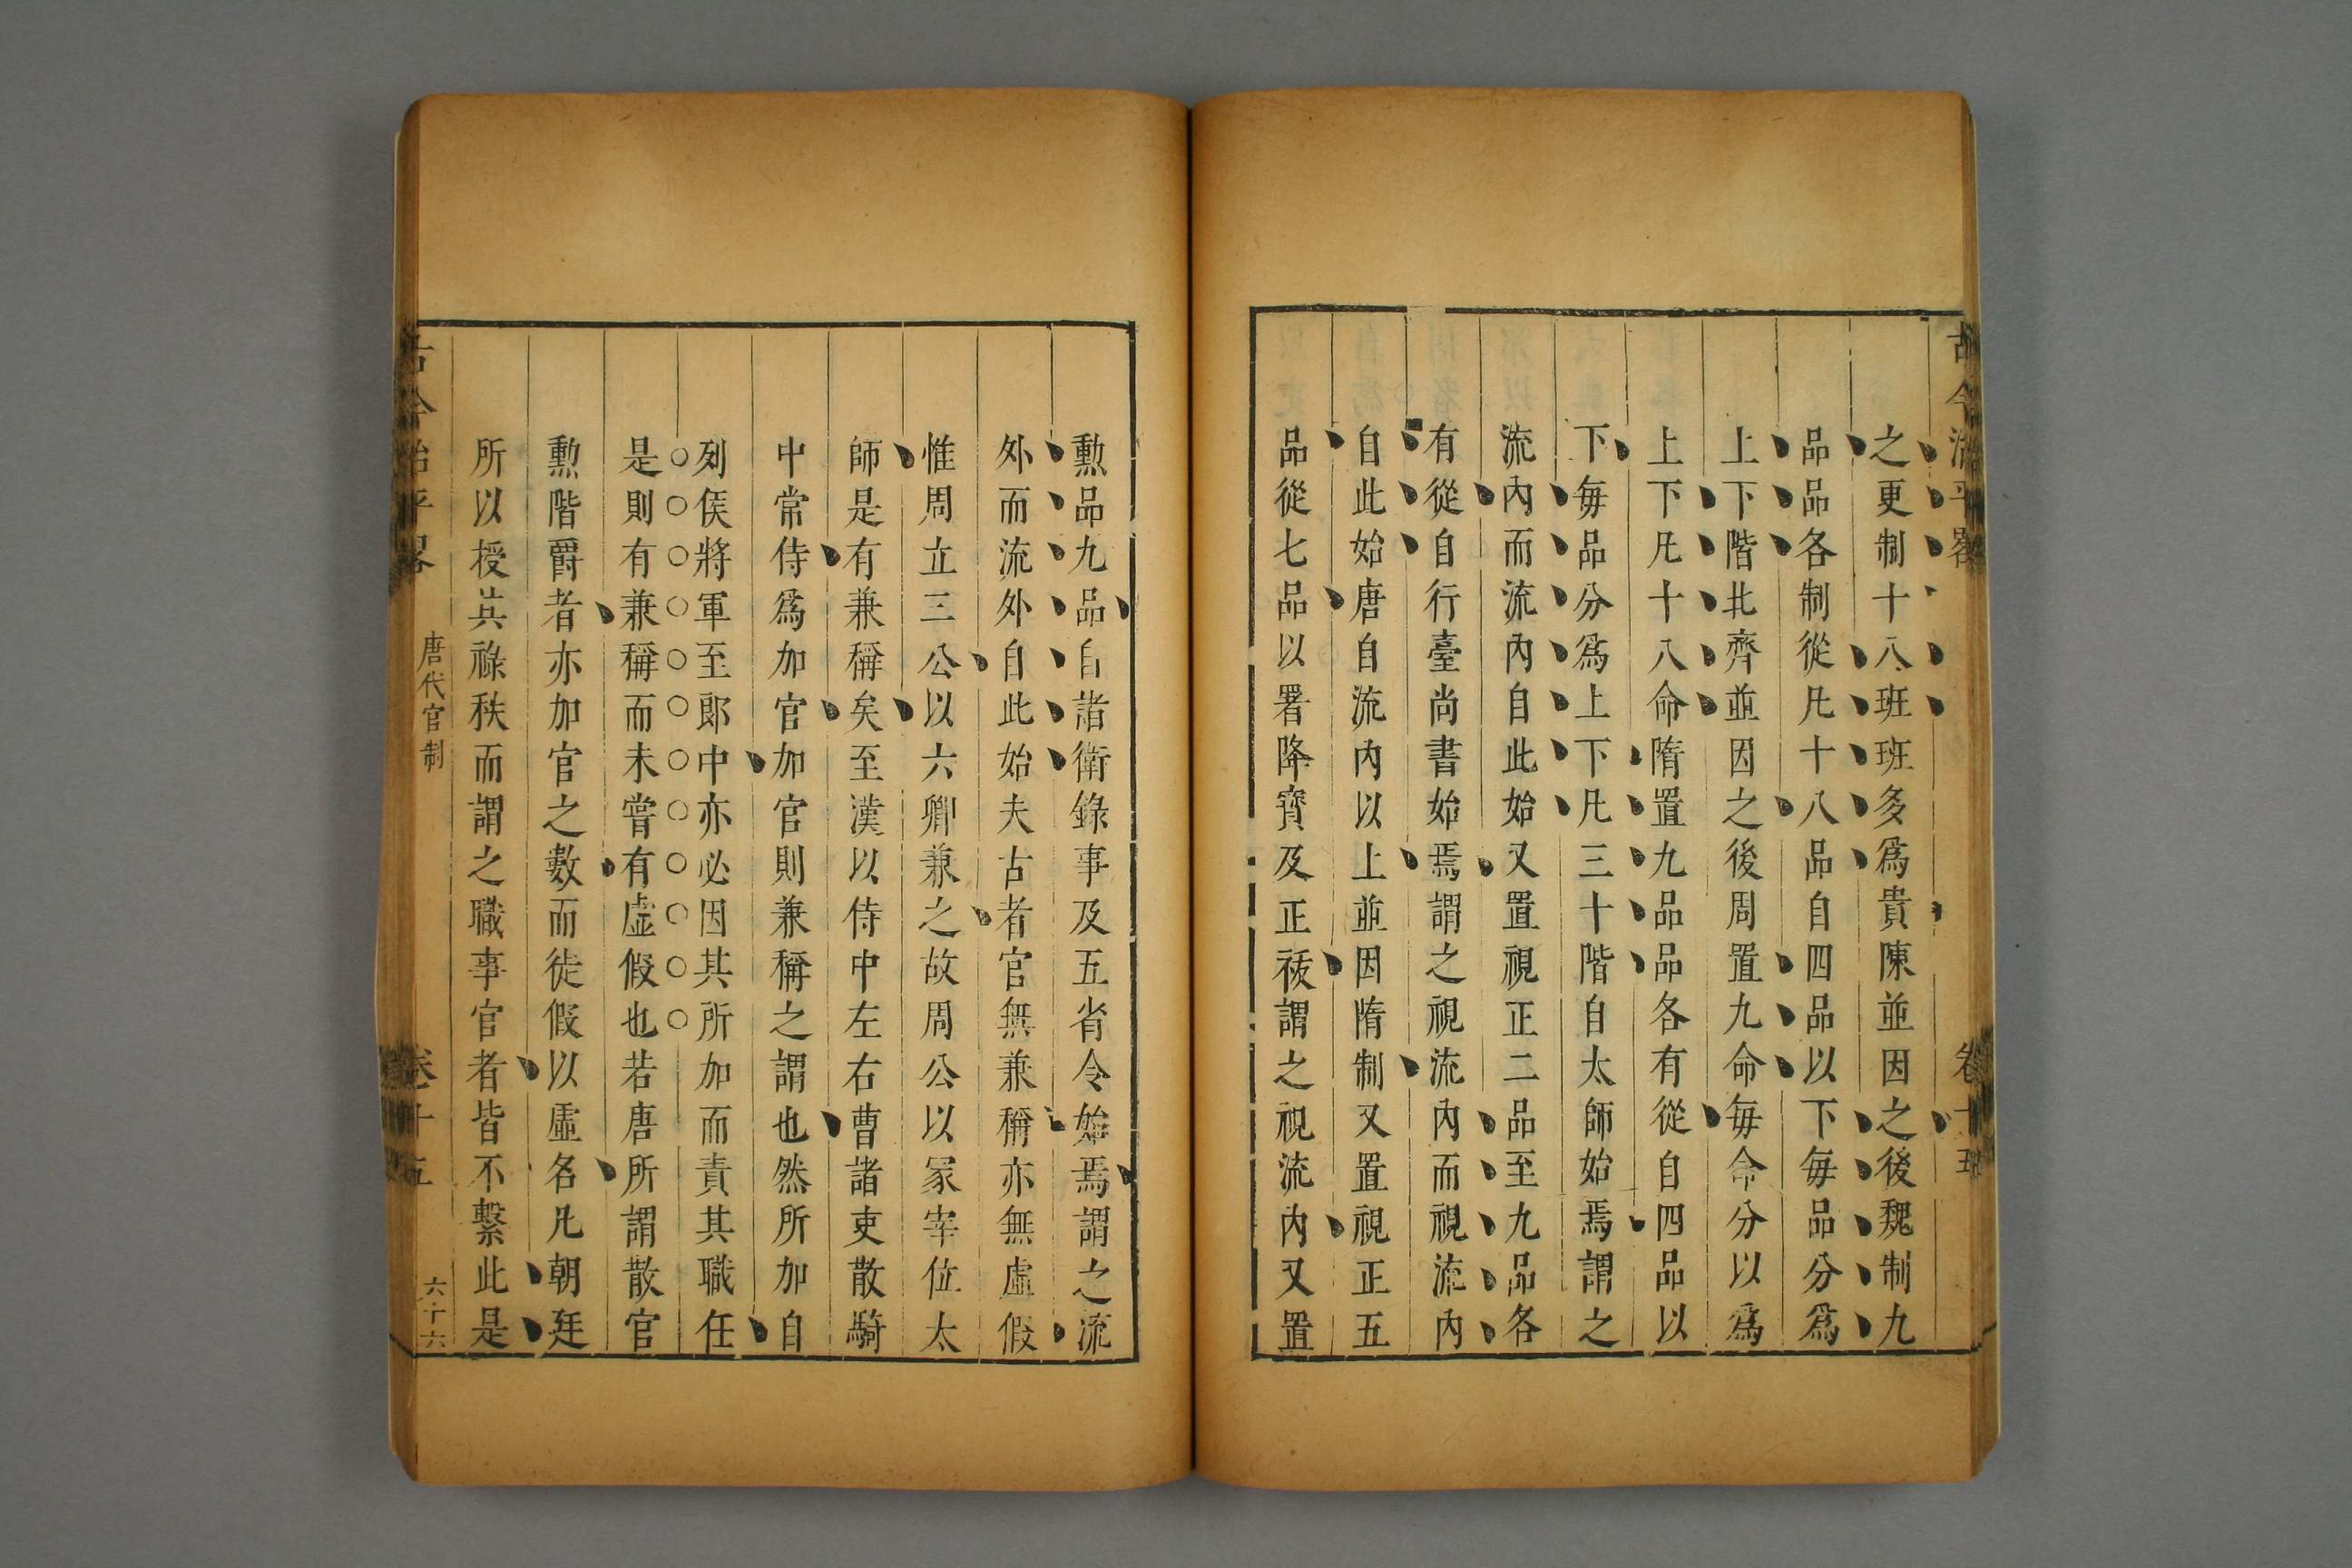 古今治平畧 卷十五
之更制十八班班多爲貴陳並因之後魏制九
品品各制從凡十八品自四品以下每品分爲
上下階北齊並因之後周置九命每命分以爲
上下凡十八命隋置九品品各有從自四品以
下每品分爲上下凡三十階自太師始焉謂之
流內而流內自此始又置視正二品至九品各
有從自行臺尚書始焉謂之視流內而視流內
自此始唐自流內以上並因隋制又置視正五
品從七品以署薩寶及正祓謂之視流內又置
勲品九品自諸衛錄事及五省令始焉謂之流
外而流外自此始夫古者官無兼稱亦無虛假
惟周立三公以六卿兼之故周公以冢宰位太
師是有兼稱矣至漢以侍中左右曹諸吏散騎
中常侍爲加官加官則兼稱之謂也然所加自
列侯將軍至郎中亦必因其所加而責其職任
是則有兼稱而未嘗有虛假也若唐所謂散官
勲階爵者亦加官之數而徒假以虛名凡朝廷
所以授兵祿秩而謂之職事官者皆不繫此是
古今治平畧 唐代官制 卷十五 六十六